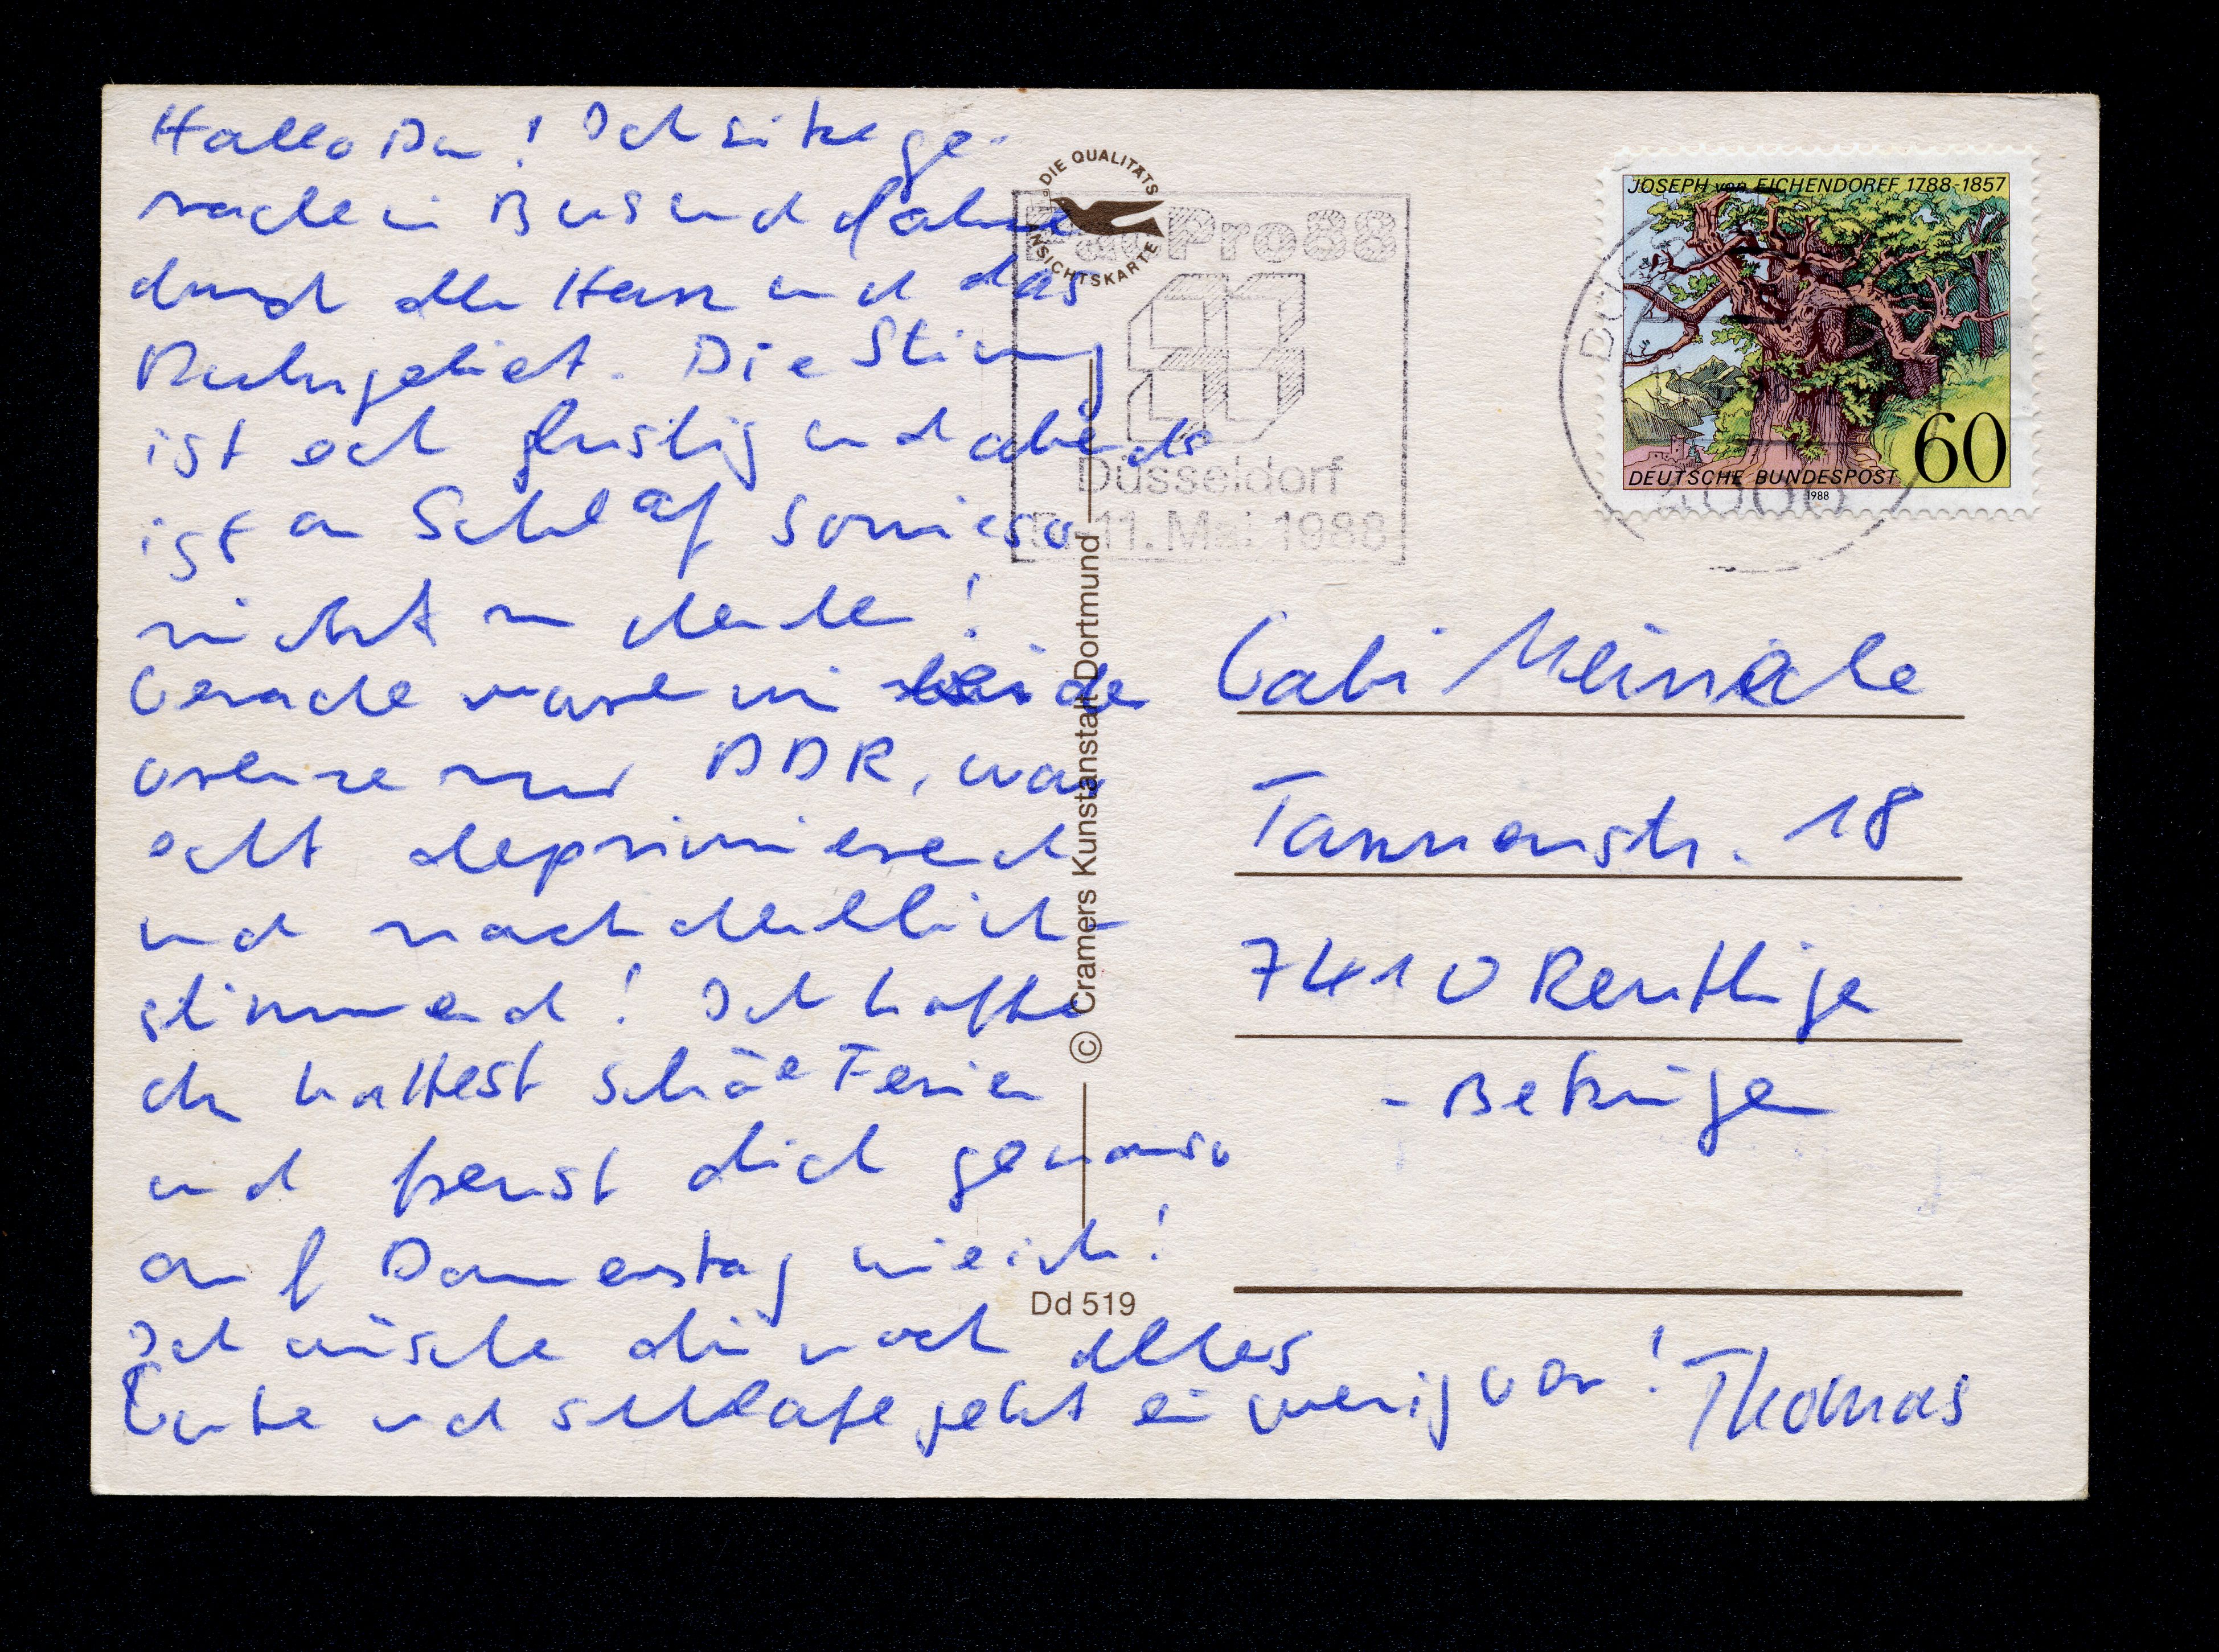 Hallo Du! Ich sitze ge-
rade in Bus und fahre
durch den Harz und das
Ruhrgebiet. Die Stimmung
ist echt günstig und abends
ist an Schlaf sowieso
nicht zu denken!
Gerade waren wir an der
Grenze zur DDR, war
echt deprimierend
und nachdenklich-
stimmend! Ich hoffe
du hattest schöne Ferien
und freust dich genauso
auf Donnerstag wie ich!
Ich wünsche dir noch alles
Gute und schlafe jetzt ein wenig vor! Thomas
DIE QUALITÄTS
ANSICHTSKARTE
PacPro88
Düsseldorf
5.-11. Mai 1988
JOSEPH von EICHENDORFF 1788-1857
DEUTSCHE BUNDESPOST 60
1988
4000
Gabi
Tannenstr. 18
7410 Reutlingen
-Betzingen
© Cramers Kunstanstalt Dortmund
Dd 519